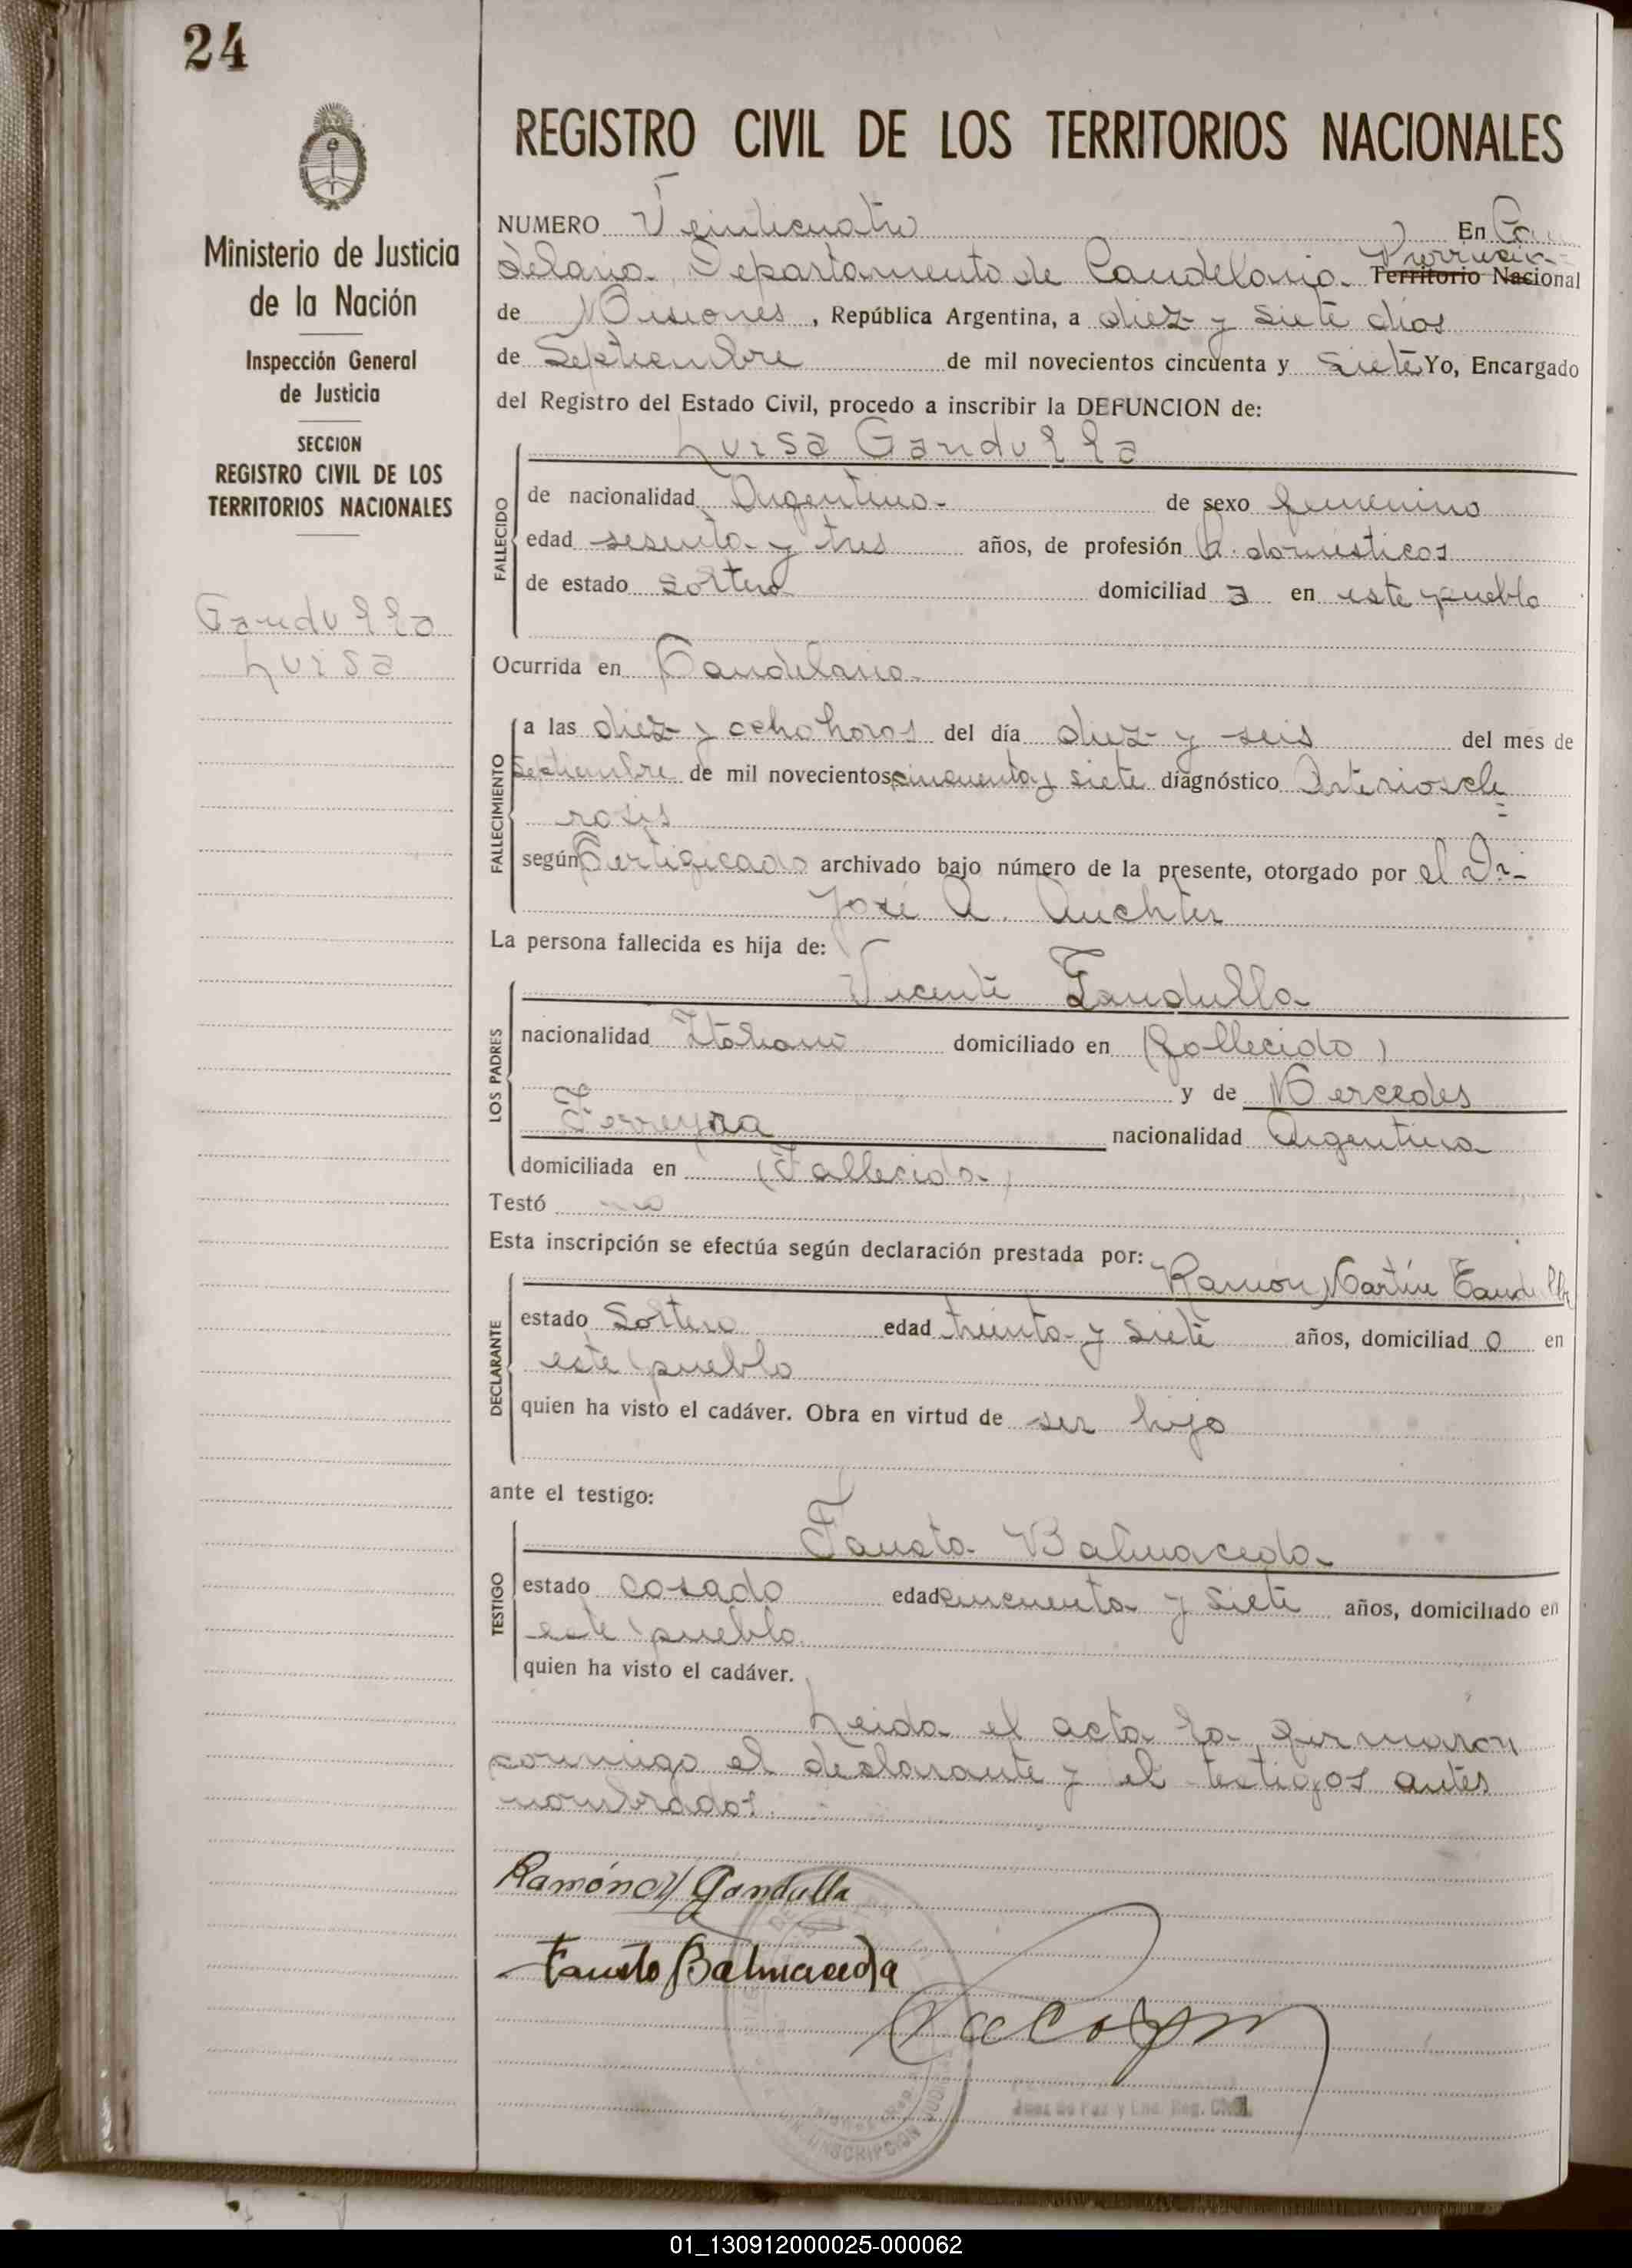 24
Ministerio de Justicia
de la Nación
Inspección General
de Justicia
SECCION
REGISTRO CIVIL DE LOS
TERRITORIOS NACIONALES
Gandulla
Luisa
REGISTRO CIVIL DE LOS TERRITORIOS NACIONALES
NUMERO Veinticuatro En Can
delaria Departamento de Candelaria Provincia Territorio Nacional
de Misiones, República Argentina, a diez y siete dias
de Septiembre de mil novecientos cincuenta y siete Yo, Encargado
del Registro del Estado Civil, procedo a inscribir la DEFUNCION de:
Luisa Gandulla
FALLECIDO
de nacionalidad Argentina de sexo femenino
edad sesenta y tres años, de profesión Q. domésticos
de estado soltera domiciliad a en este pueblo
Ocurrida en Candelaria
FALLECIMIENTO
a las diez y ocho horas del día diez y seis del mes de
Septiembre de mil novecientos cincuenta y siete diagnóstico Arterioscle=
rosis
según Certificado archivado bajo número de la presente, otorgado por el Dr.
José A. Auchter
La persona fallecida es hija de:
LOS PADRES
Vicente Gandulla
nacionalidad Italiano domiciliado en (fallecido)
y de Mercedes
Ferreyra nacionalidad Argentina
domiciliada en (Fallecida)
Testó no
Esta inscripción se efectúa según declaración prestada por:
DECLARANTE
Ramón Martín Gandulla
estado Soltero edad treinta y siete años, domiciliad o en
este pueblo
quien ha visto el cadáver. Obra en virtud de ser hijo
ante el testigo:
TESTIGO
Fausto Balmaceda
estado casado edad cincuenta y siete años, domiciliado en
este pueblo
quien ha visto el cadáver.
Leida el acta la firmaron
conmigo el declarante y el testigos antes
nombrados.
Ramón M Gandulla
Fausto Balmaceda
Juez de Paz y Enc. Reg. Civil
01_130912000025-000062